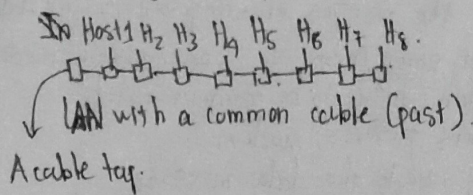 Host1 H2 H3 H4 H5 H6 H7 H8.
LAN with a common cable (past).
A cable tap.